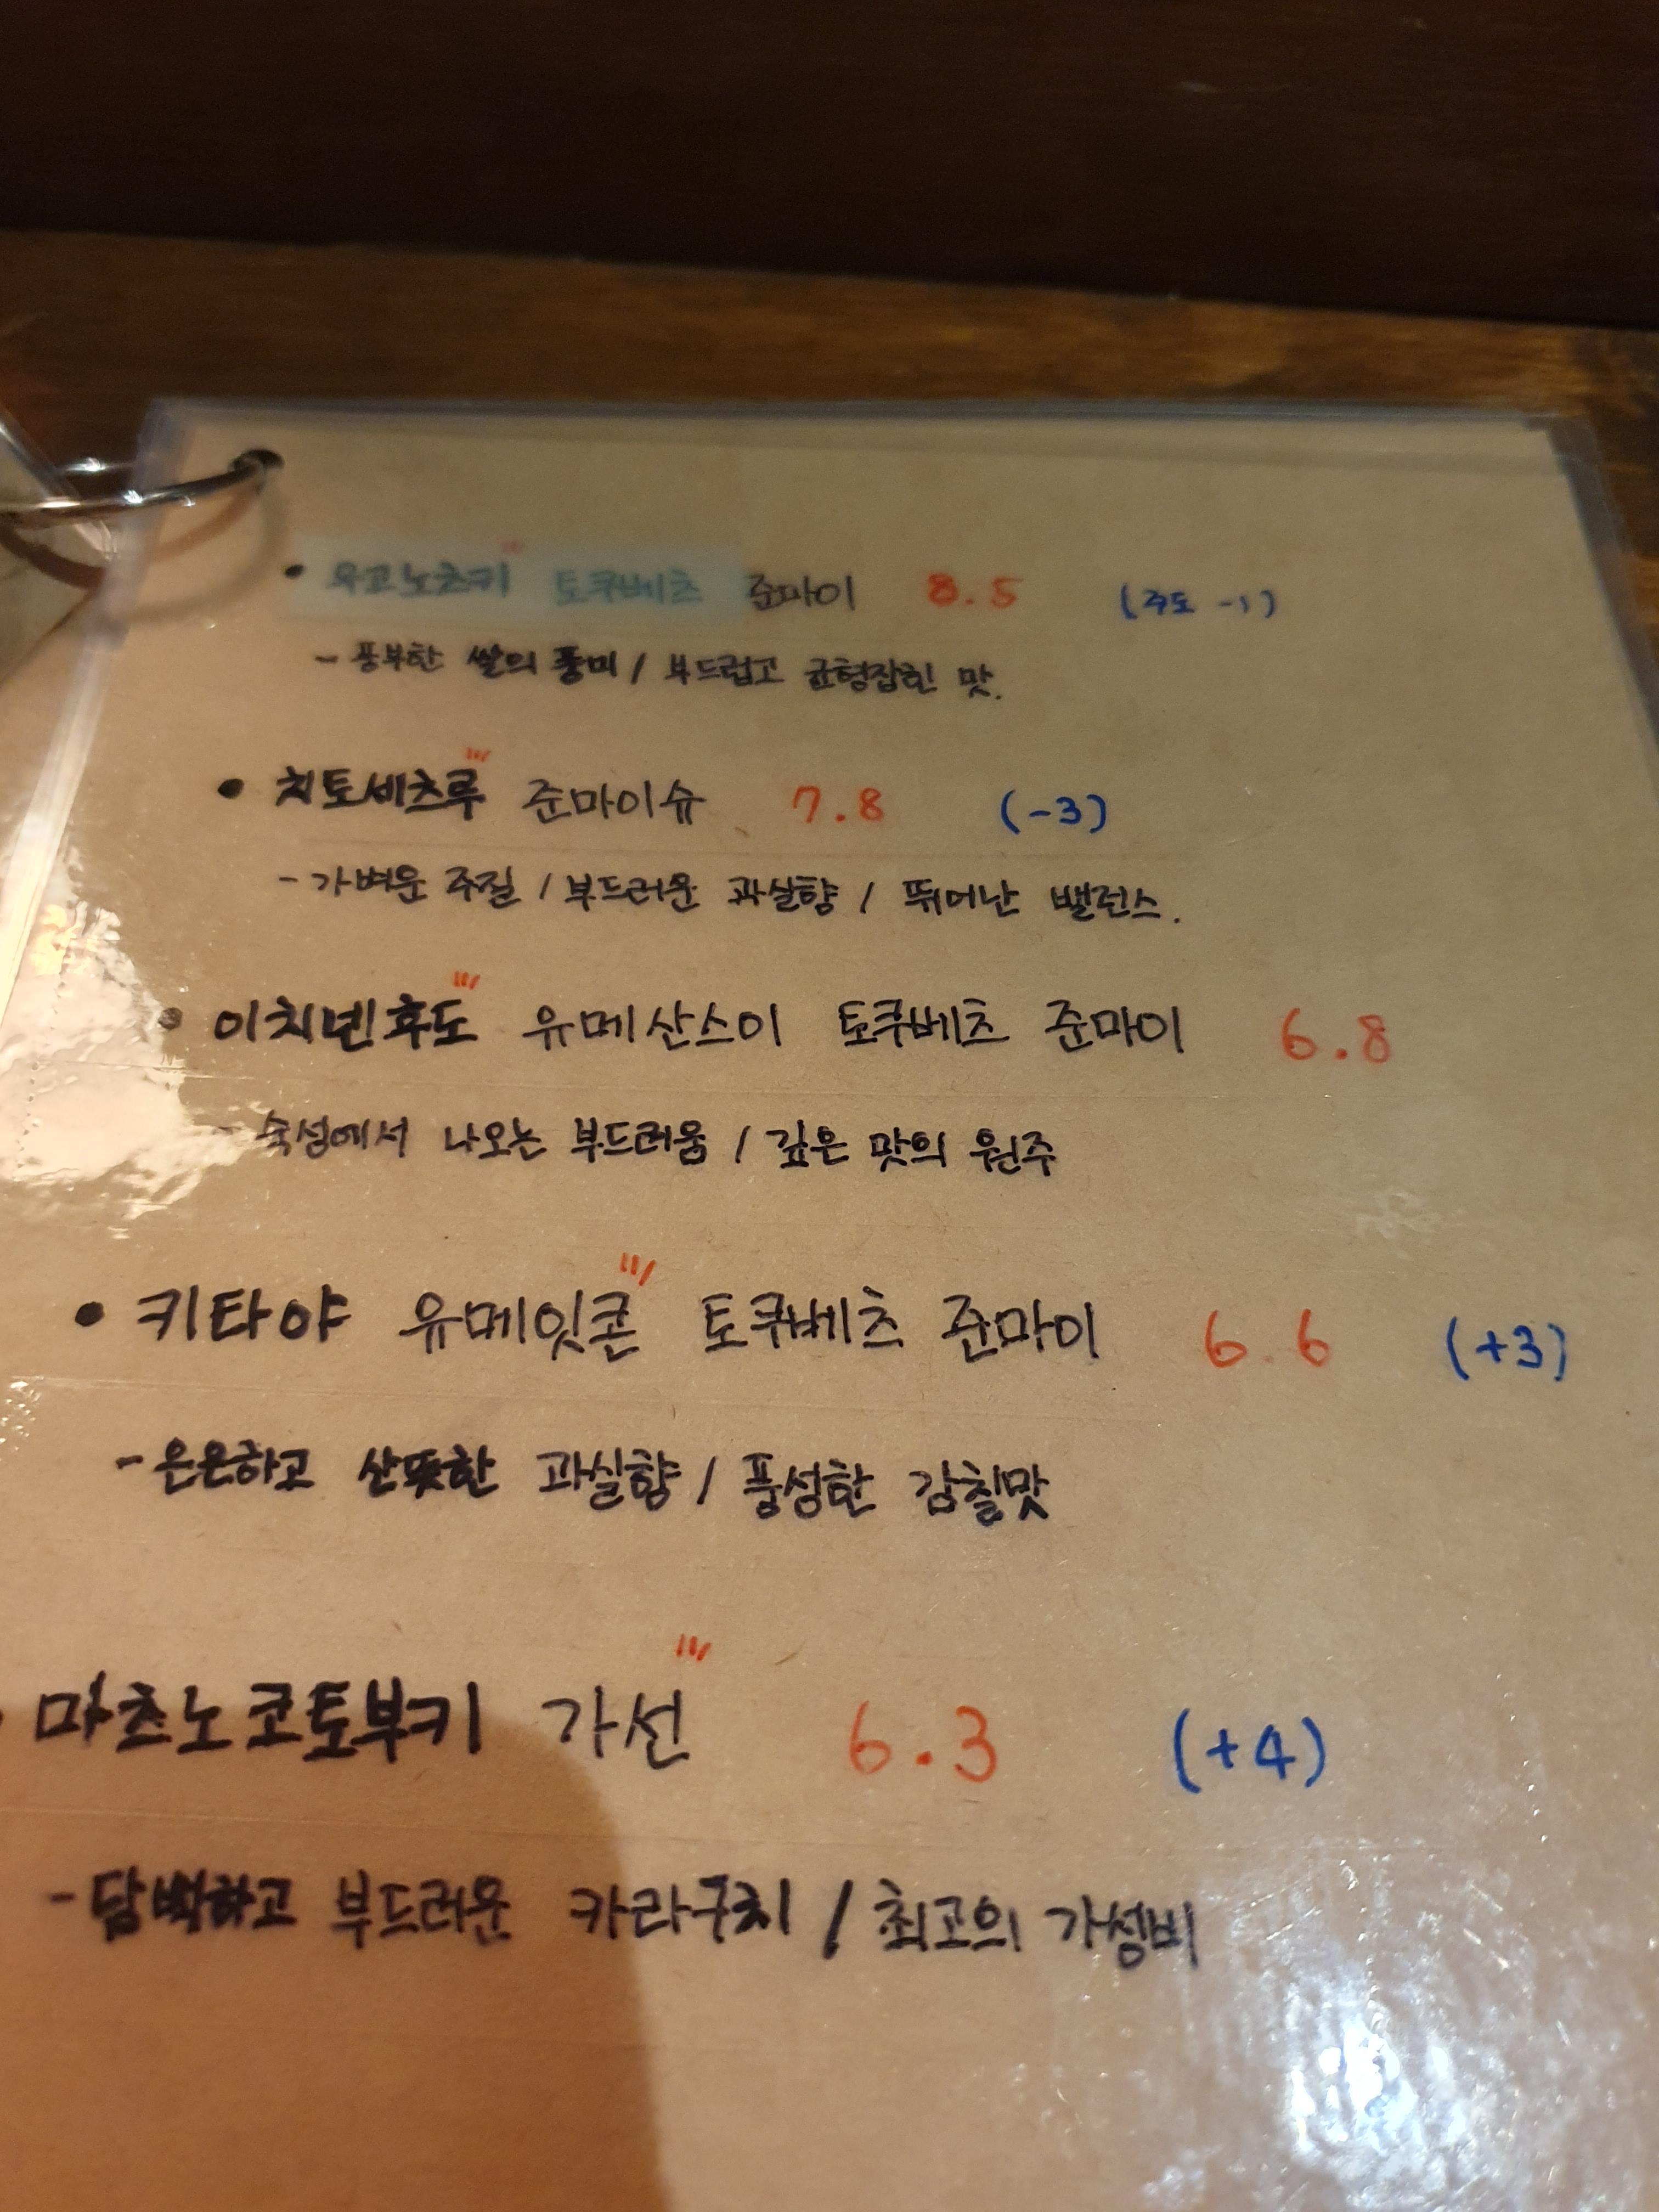 • 우고노츠키 토쿠베츠 준마이 8.5 (주도 -1)
- 풍부한 쌀의 풍미 / 부드럽고 균형잡힌 맛.
• 치토세츠루 준마이슈 7.8 (-3)
- 가벼운 주질 / 부드러운 과실향 / 뛰어난 밸런스.
• 이치넨후도 유메산스이 토쿠베츠 준마이 6.8
- 숙성에서 나오는 부드러움 / 깊은 맛의 원주
• 키타야 유메잇콘 토쿠베츠 준마이 6.6 (+3)
- 은은하고 산뜻한 과실향 / 풍성한 감칠맛
• 마츠노코토부키 가선 6.3 (+4)
- 담백하고 부드러운 카라구치 / 최고의 가성비